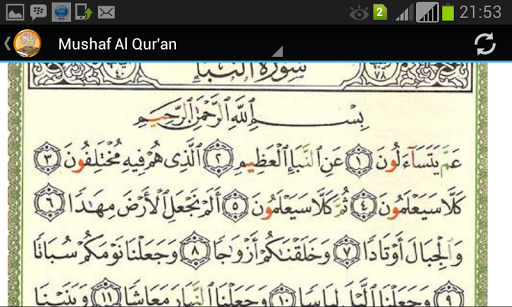 21:53
2
Mushaf Al Qur'an
سورة النبإ
٧٨
بِسْمِ اللَّهِ الرَّحْمَٰنِ الرَّحِيمِ
عَمَّ يَتَسَآءَلُونَ ١ عَنِ النَّبَإِ الْعَظِيمِ ٢ الَّذِى هُمْ فِيهِ مُخْتَلِفُونَ ٣
كَلَّا سَيَعْلَمُونَ ٤ ثُمَّ كَلَّا سَيَعْلَمُونَ ٥ أَلَمْ نَجْعَلِ الْأَرْضَ مِهَٰدًا ٦
وَالْجِبَالَ أَوْتَادًا ٧ وَخَلَقْنَٰكُمْ أَزْوَٰجًا ٨ وَجَعَلْنَا نَوْمَكُمْ سُبَاتًا
٩ وَجَعَلْنَا الَّيْلَ لِبَاسًا ١٠ وَجَعَلْنَا النَّهَارَ مَعَاشًا ١١ وَبَنَيْنَا